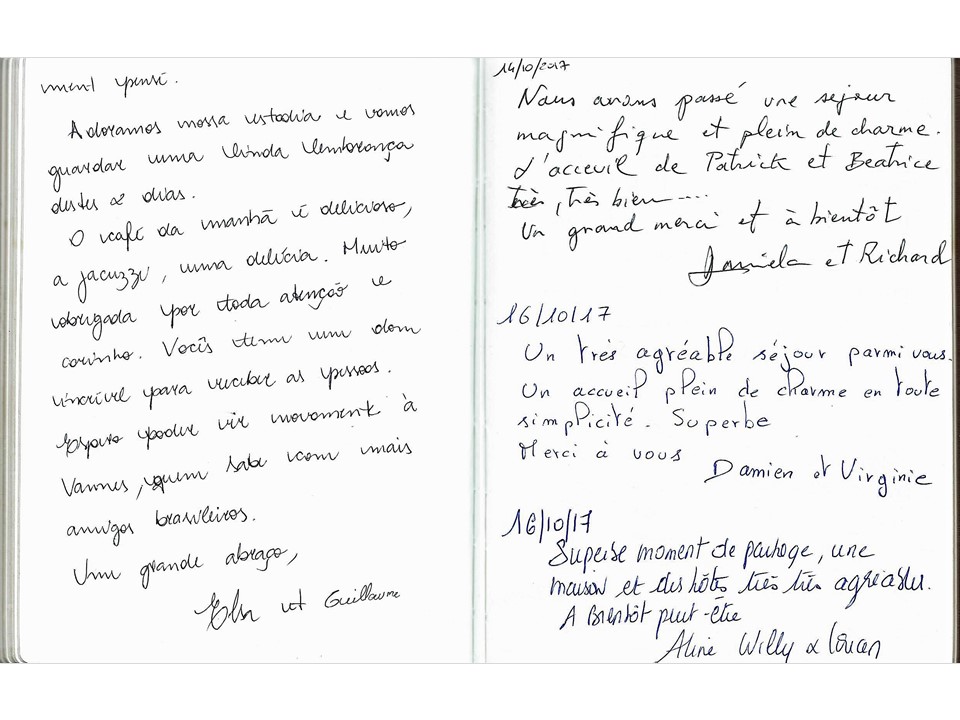 ment pensé.
Adoramos nossa estadia e vamos
guardar uma linda lembrança
destes 2 dias.
O café da manhã é delicioso,
a jacuzzi, uma delícia. Muito
obrigada por toda atenção e
carinho. Vocês tem um dom
incrível para receber as pessoas.
Espero poder vir novament à
Vannes, quem sabe com mais
amigos brasileiros.
Um grande abraço,
Elsa et Guillaume
14/10/2017
Nous avons passé une sejour
magnifique et plein de charme.
L'acceuil de Patrick et Beatrice
très, très bien....
Un grand merci et à bientôt
Daniela et Richard
16/10/17
Un très agréable séjour parmi vous.
Un accueil plein de charme en toute
simplicité. Superbe
Merci à vous
Damien et Virginie
16/10/17
Superbe moment de partage, une
maison et des hôtes très très agréables.
A Bientôt peut-être
Aline Willy &